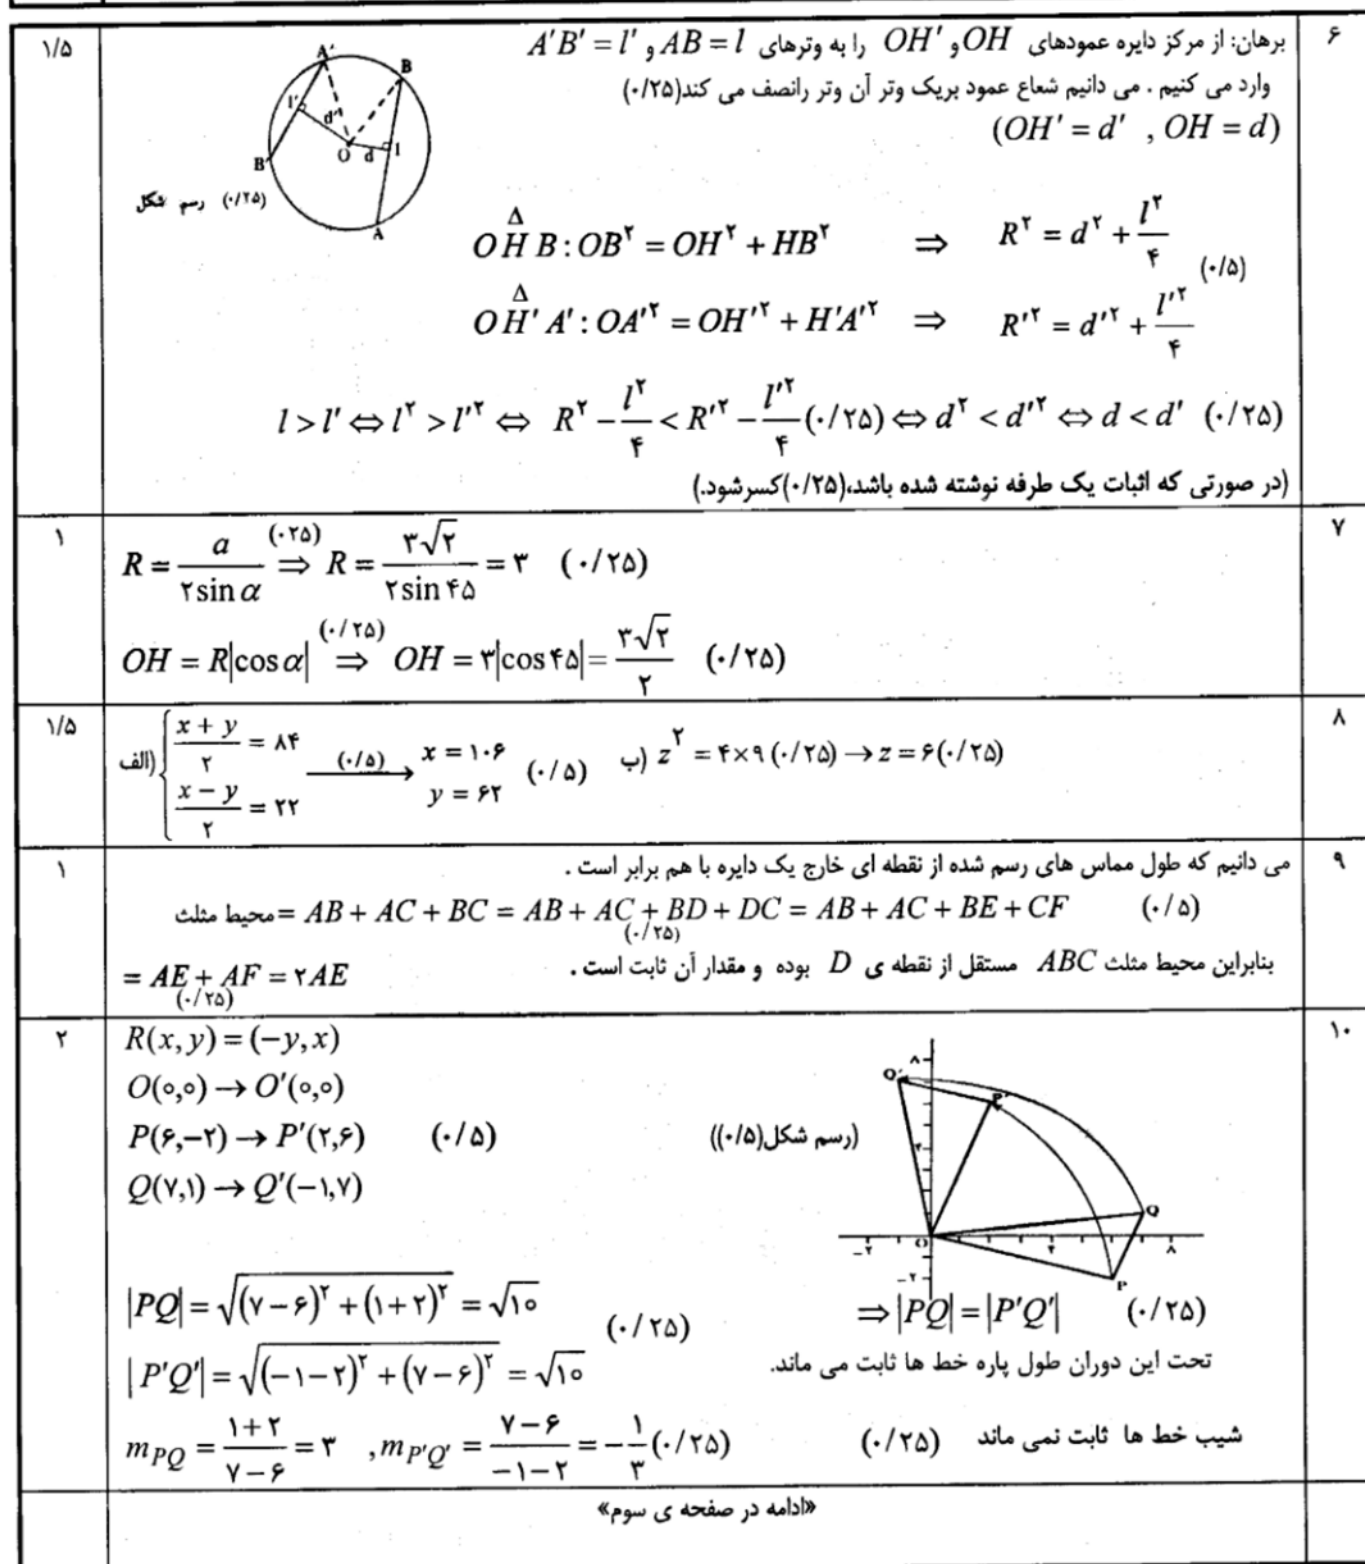 ۶
۱/۵
برهان: از مرکز دایره عمودهای OH و OH' را به وترهای AB = l و A'B' = l'
وارد می کنیم . می دانیم شعاع عمود بریک وتر آن وتر رانصف می کند(۰/۲۵)
(OH' = d' , OH = d)
A'
B
l'
d'
O
d
l
B'
A
(۰/۲۵) رسم شکل
OHB (Δ) : OB² = OH² + HB² ⇒ R² = d² + l²/۴
(۰/۵)
OH'A' (Δ) : OA'² = OH'² + H'A'² ⇒ R'² = d'² + l'²/۴
l > l' ⇔ l² > l'² ⇔ R² − l²/۴ < R'² − l'²/۴ (۰/۲۵) ⇔ d² < d'² ⇔ d < d' (۰/۲۵)
(در صورتی که اثبات یک طرفه نوشته شده باشد،(۰/۲۵)کسرشود.)
۷
۱
R = a/۲sin α ⇒ (۰۲۵) R = ۳√۲/۲sin ۴۵ = ۳ (۰/۲۵)
OH = R|cos α| ⇒ (۰/۲۵) OH = ۳|cos ۴۵| = ۳√۲/۲ (۰/۲۵)
۸
۱/۵
الف) { (x + y)/۲ = ۸۴ , (x − y)/۲ = ۲۲ (۰/۵) → x = ۱۰۶ , y = ۶۲ (۰/۵) ب) z² = ۴×۹ (۰/۲۵) → z = ۶ (۰/۲۵)
۹
۱
می دانیم که طول مماس های رسم شده از نقطه ای خارج یک دایره با هم برابر است .
محیط مثلث = AB + AC + BC = AB + AC + BD + DC = AB + AC + BE + CF (۰/۵)
(۰/۲۵)
= AE + AF = ۲AE
(۰/۲۵)
بنابراین محیط مثلث ABC مستقل از نقطه ی D بوده و مقدار آن ثابت است .
۱۰
۲
R(x, y) = (−y, x)
O(۰,۰) → O'(۰,۰)
P(۶,−۲) → P'(۲,۶) (۰/۵)
Q(۷,۱) → Q'(−۱,۷)
(رسم شکل(۰/۵))
۸
Q'
P'
۴
Q
O
−۲
۴
۸
−۲
P
|PQ| = √(۷−۶)² + (۱+۲)² = √۱۰
(۰/۲۵)
|P'Q'| = √(−۱−۲)² + (۷−۶)² = √۱۰
⇒ |PQ| = |P'Q'| (۰/۲۵)
تحت این دوران طول پاره خط ها ثابت می ماند.
m PQ = (۱+۲)/(۷−۶) = ۳ , m P'Q' = (۷−۶)/(−۱−۲) = −۱/۳ (۰/۲۵)
شیب خط ها ثابت نمی ماند (۰/۲۵)
«ادامه در صفحه ی سوم»